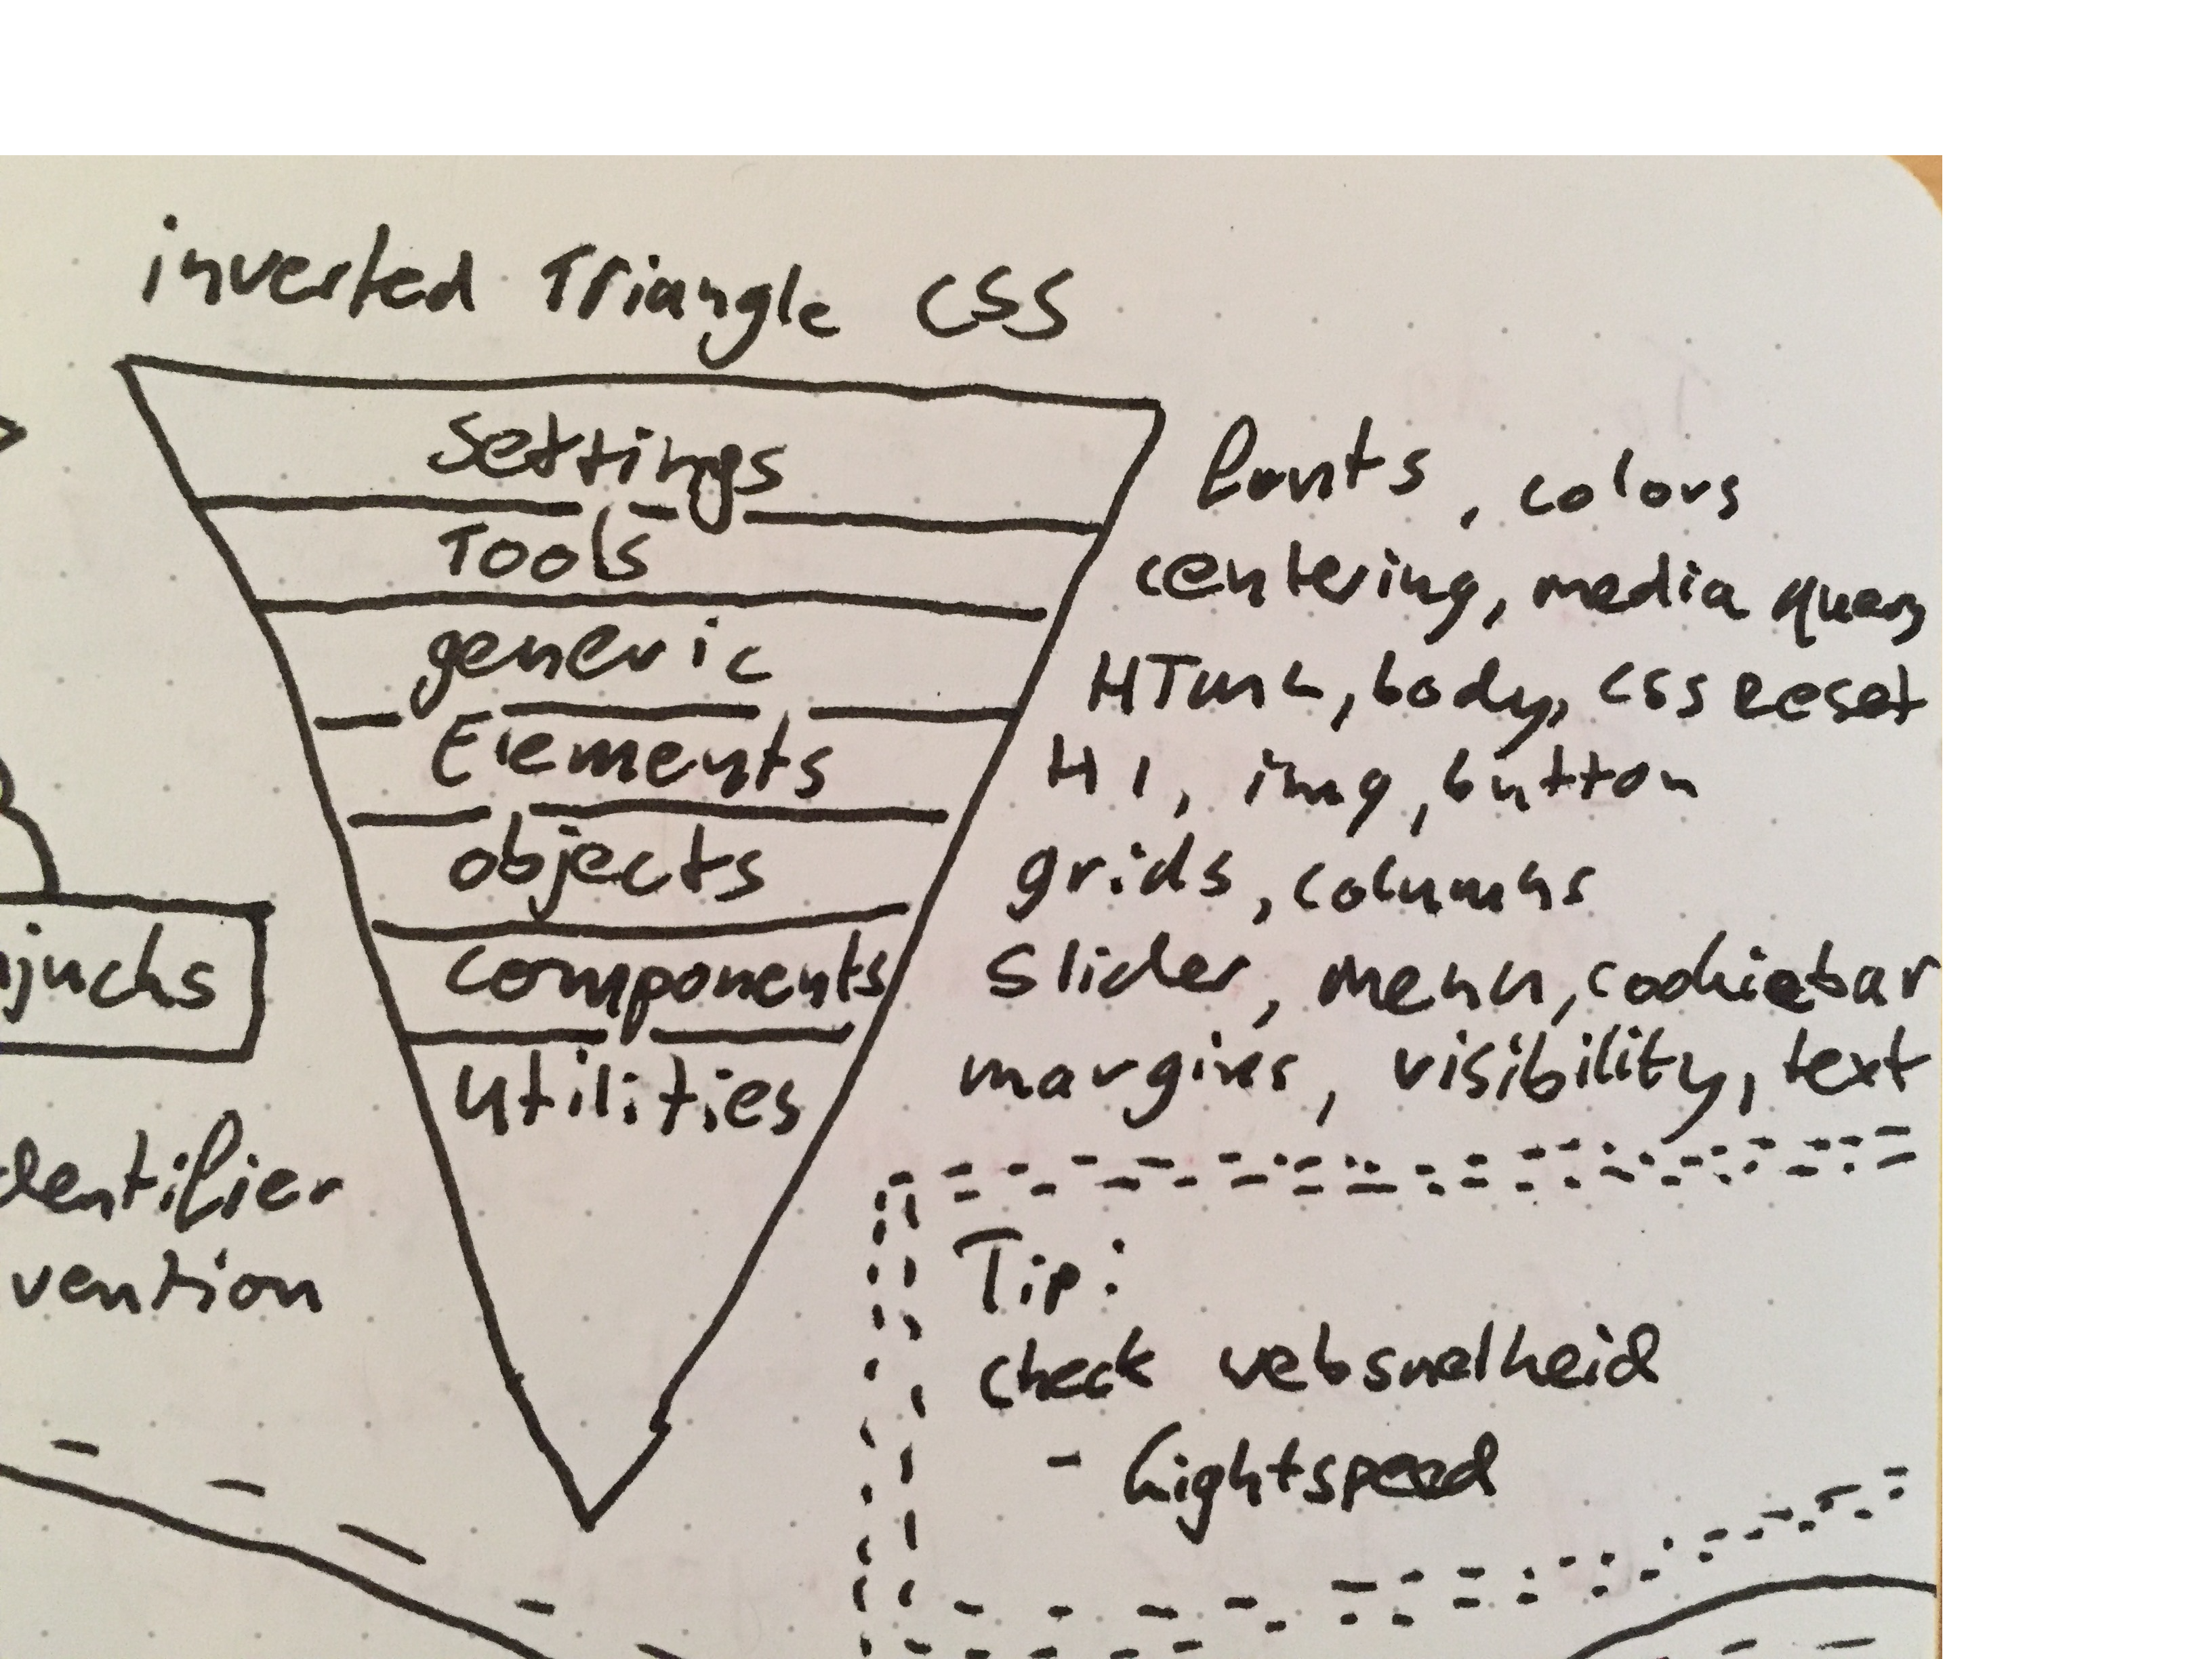 inverted Triangle CSS
Settings
fonts, colors
Tools
centering, media query
generic
HTML, body, CSS Reset
Elements
H1, img, button
objects
grids, columns
components
Slider, menu, cookiebar
utilities
margins, visibility, text
njucks
dentifier
vention
Tip:
check websnelheid
- Lightspeed